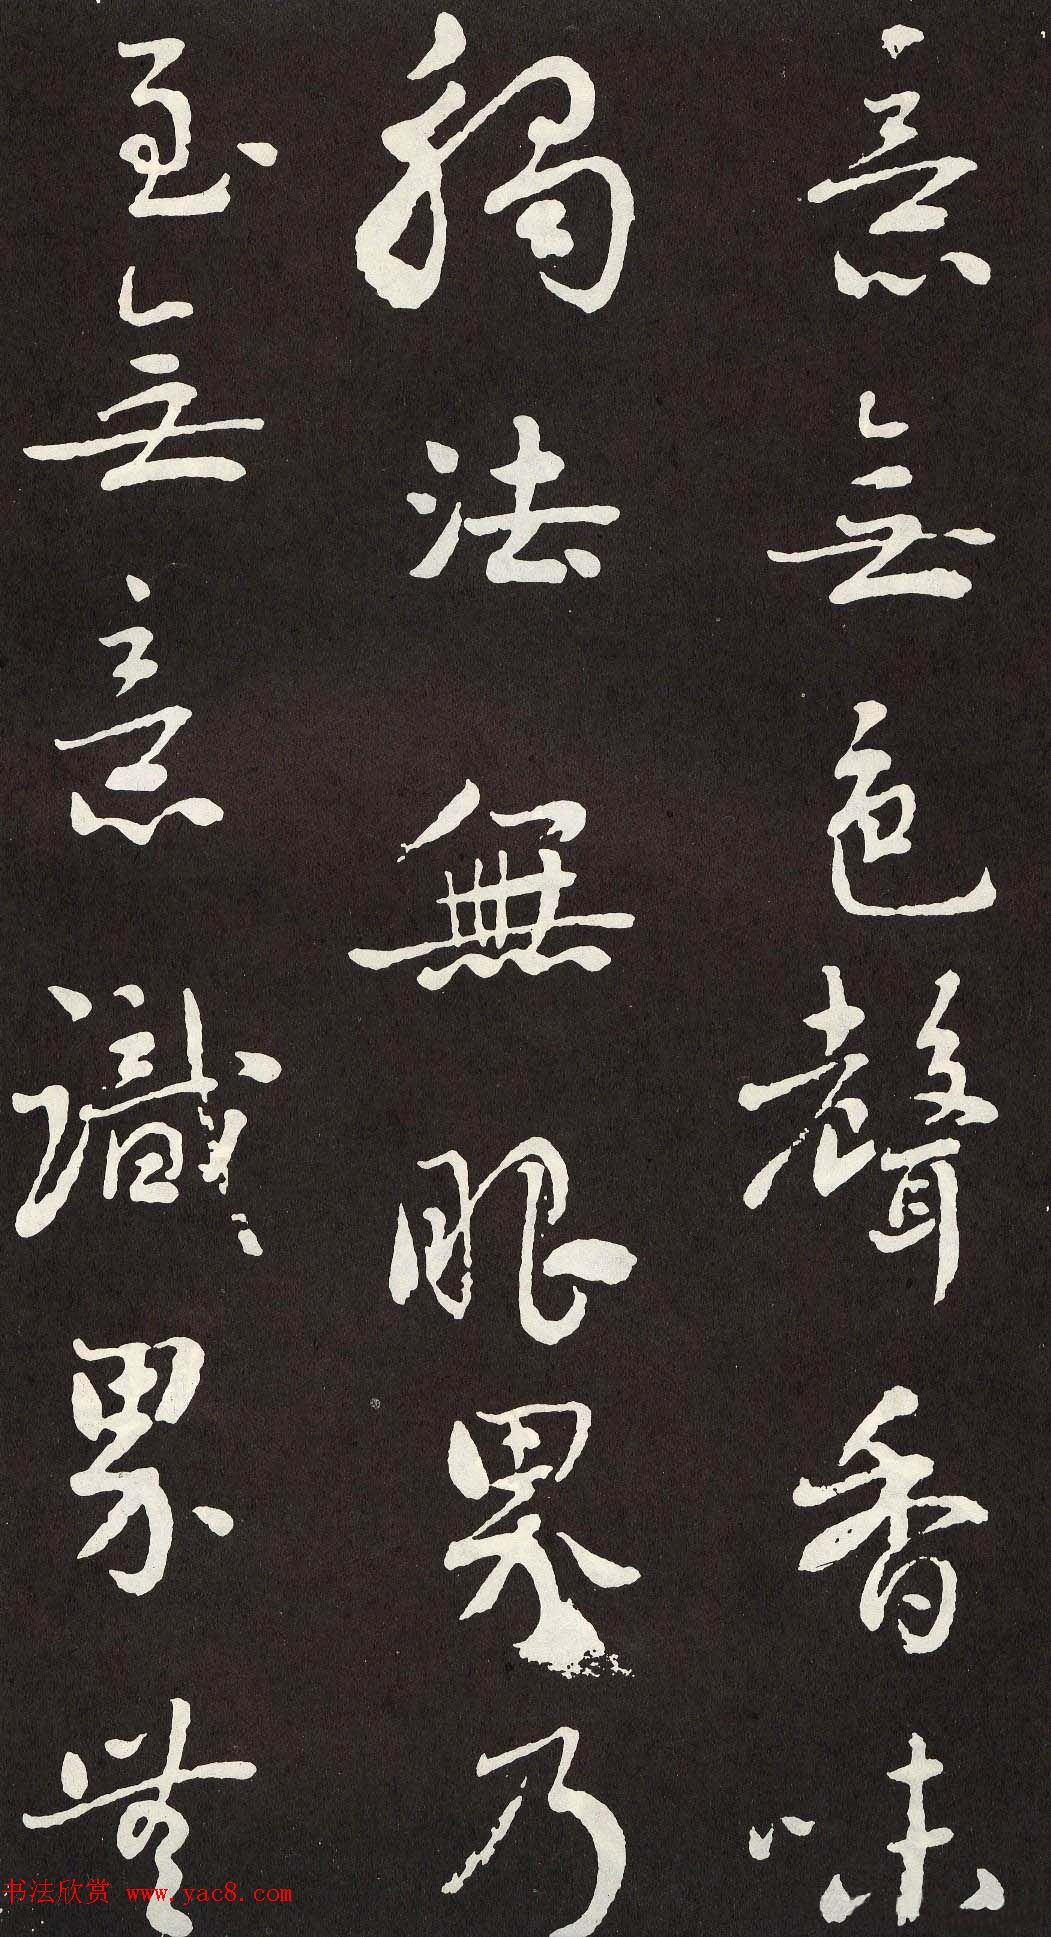 意無色聲香味
觸法無眼界乃
至無意識界無
书法欣赏 www.yac8.com